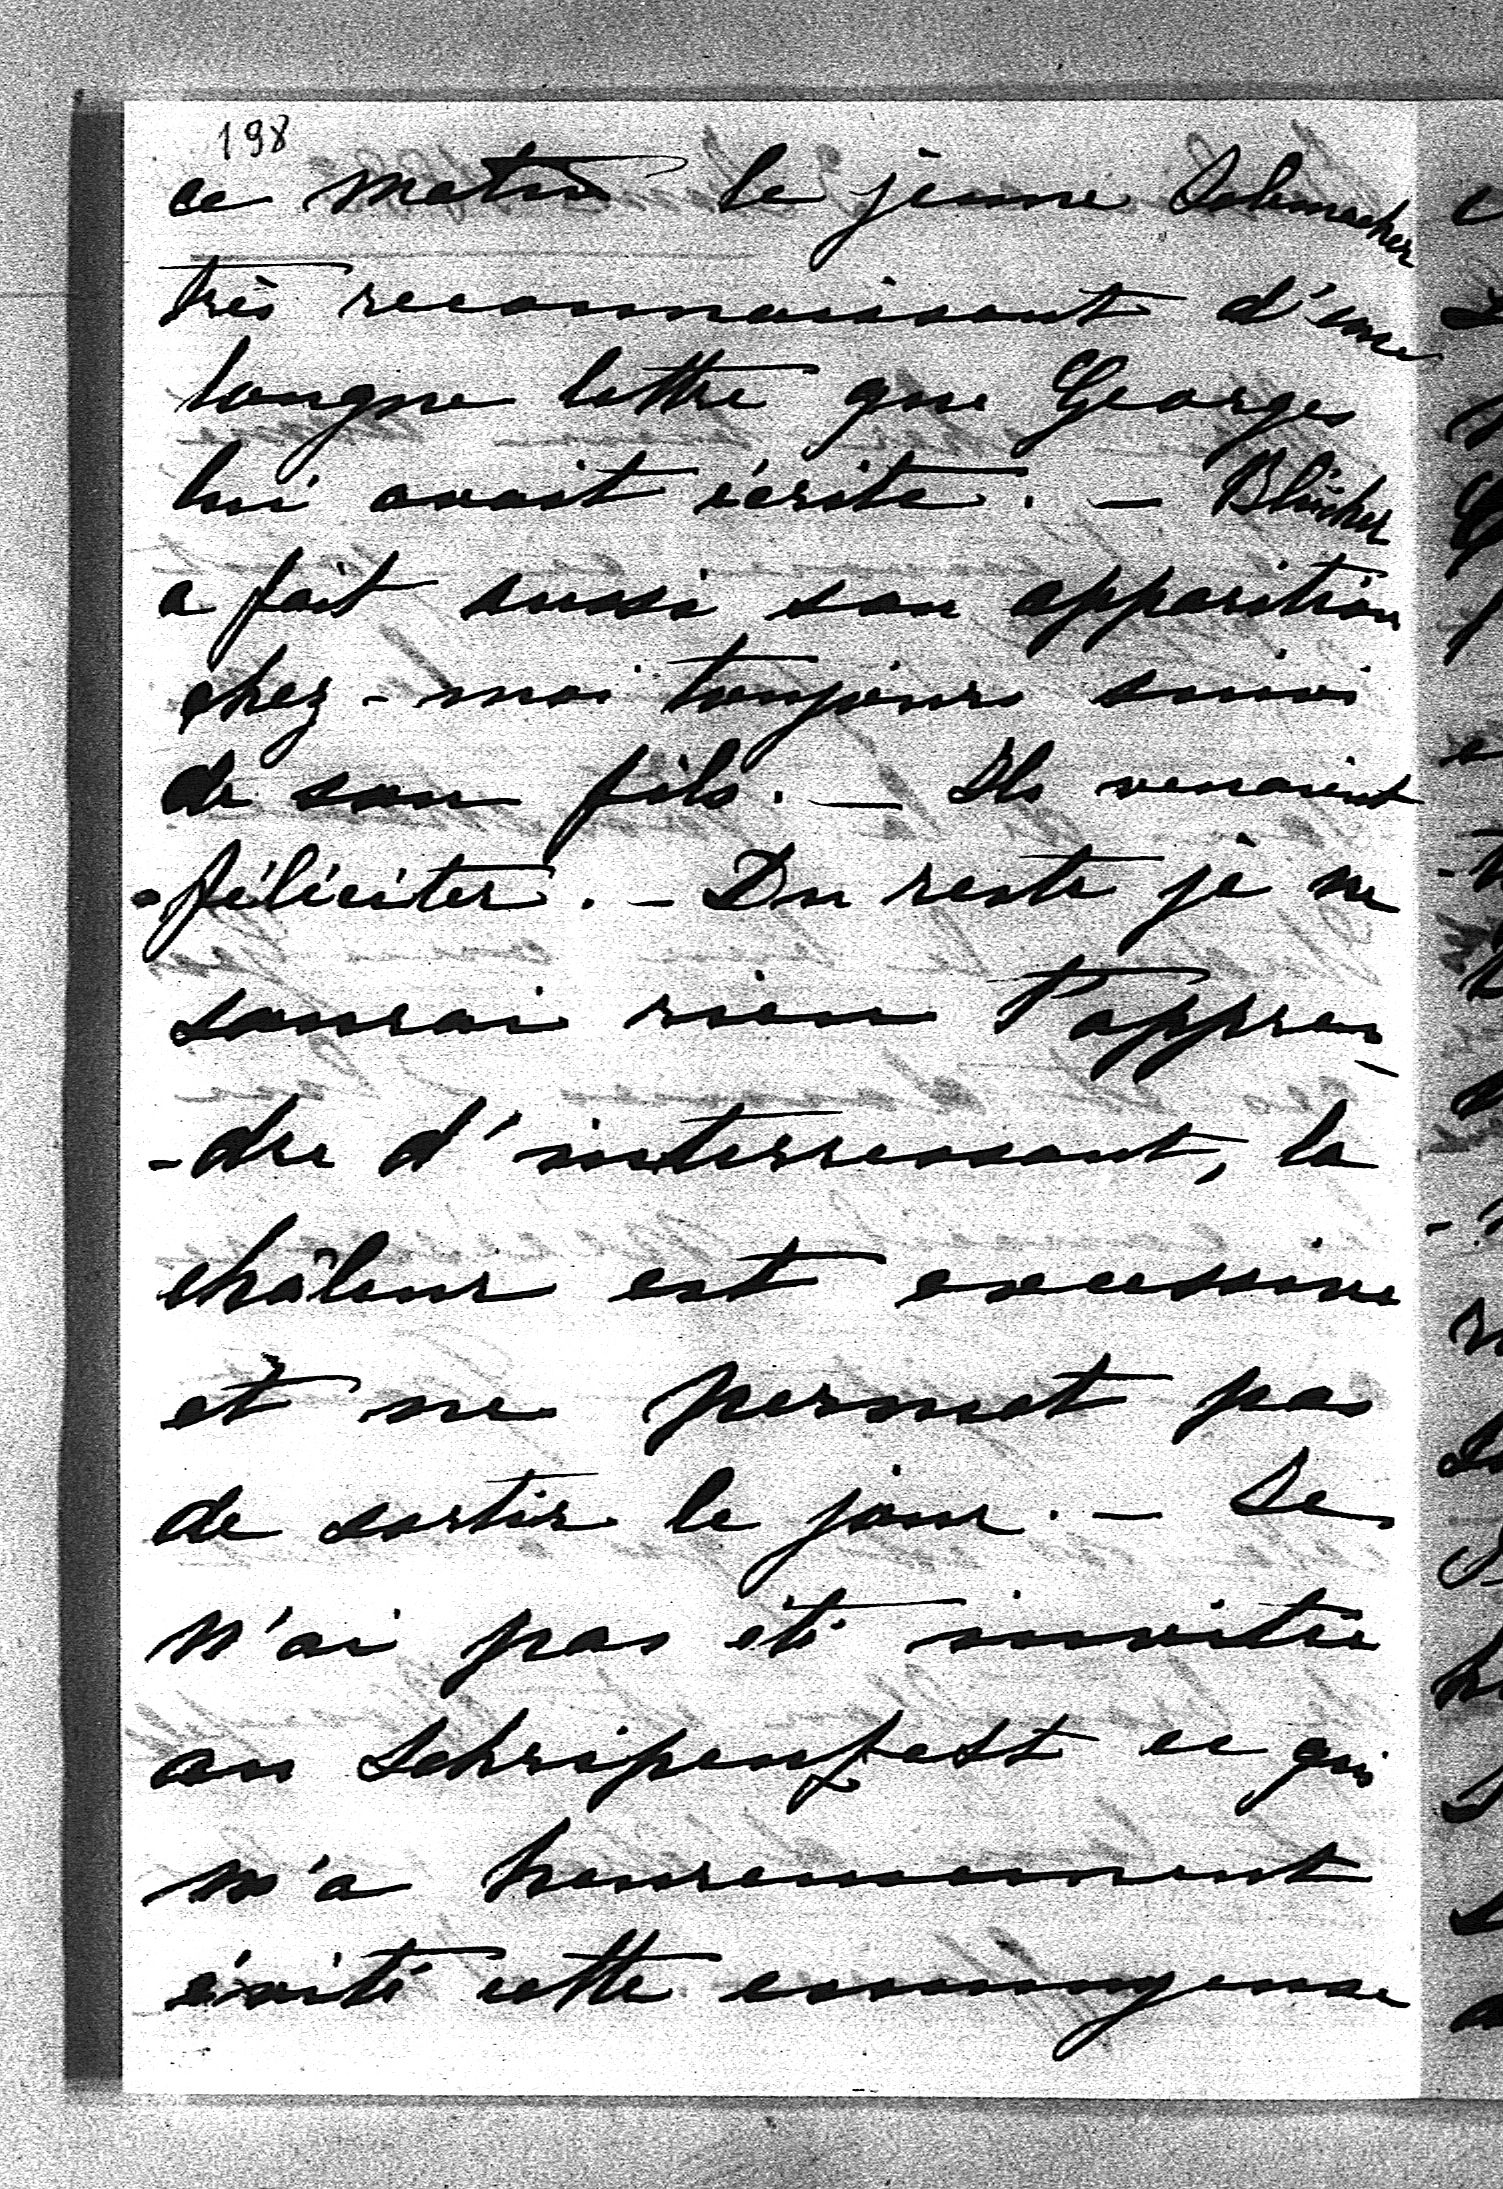 198
ce matin le jeune Schumacher
très reconnaissant d'une
longue lettre que Georges
lui avait écrite. — Blücher
a fait aussi son apparition
chez-moi toujours suivi
de son fils. — Ils venaient
féliciter. — Du reste je ne
saurai rien t'appren
-dre d'interressant, la
châleur est excessive
et ne permet pas
de sortir le jour. — Je
n'ai pas été invitée
au Schripenfest ce qui
m'a heureusement
évité cette ennuyeuse